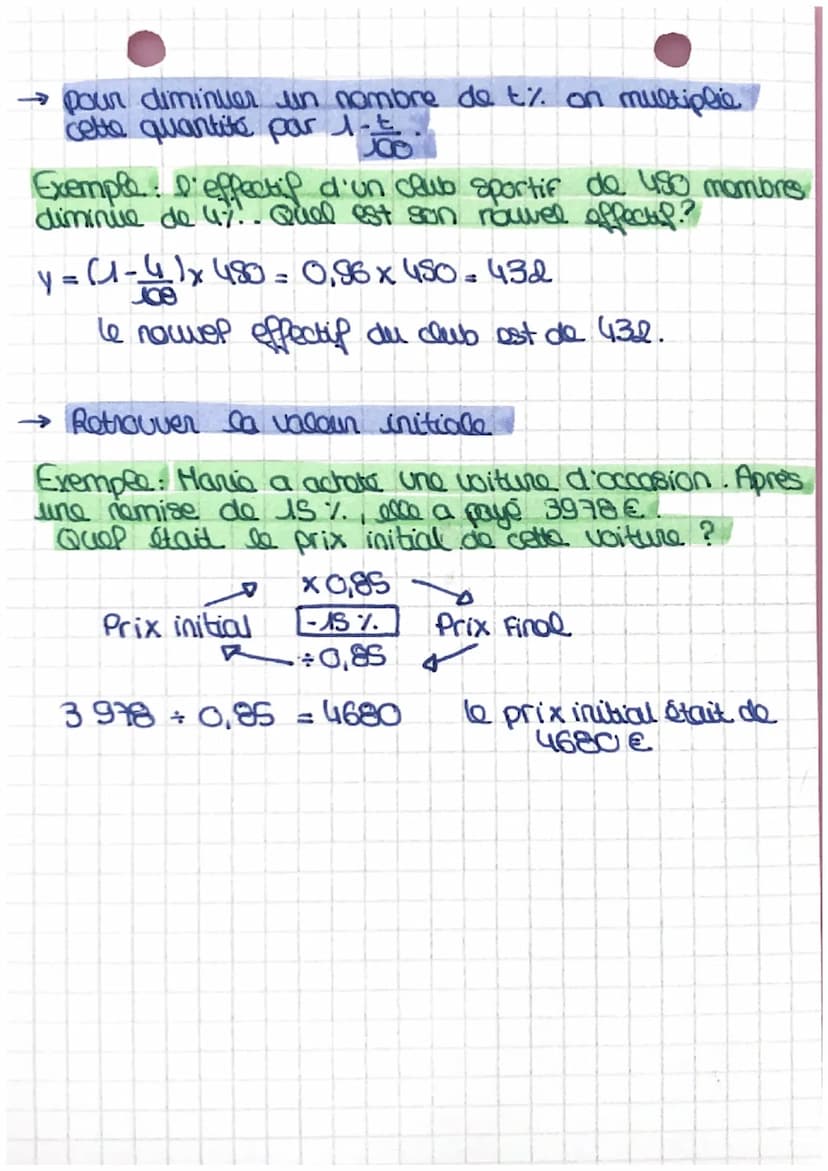 → pour diminuer un nombre de t% on multiplie
cette quantité par 1 - t/100.
Exemple : l'effectif d'un club sportif de 450 membres
diminue de 4%.. Quel est son nouvel effectif ?
y = (1 - 4/100) x 450 = 0,96 x 450 = 432
le nouvel effectif du club est de 432.
→ Retrouver la valeur initiale
Exemple : Maria a acheté une voiture d'occasion. Après
une remise de 15 %, elle a payé 3978 €.
Quel était le prix initial de cette voiture ?
x 0,85
Prix initial -15 % Prix Final
÷ 0,85
3 978 ÷ 0,85 = 4680 le prix initial était de
4680 €